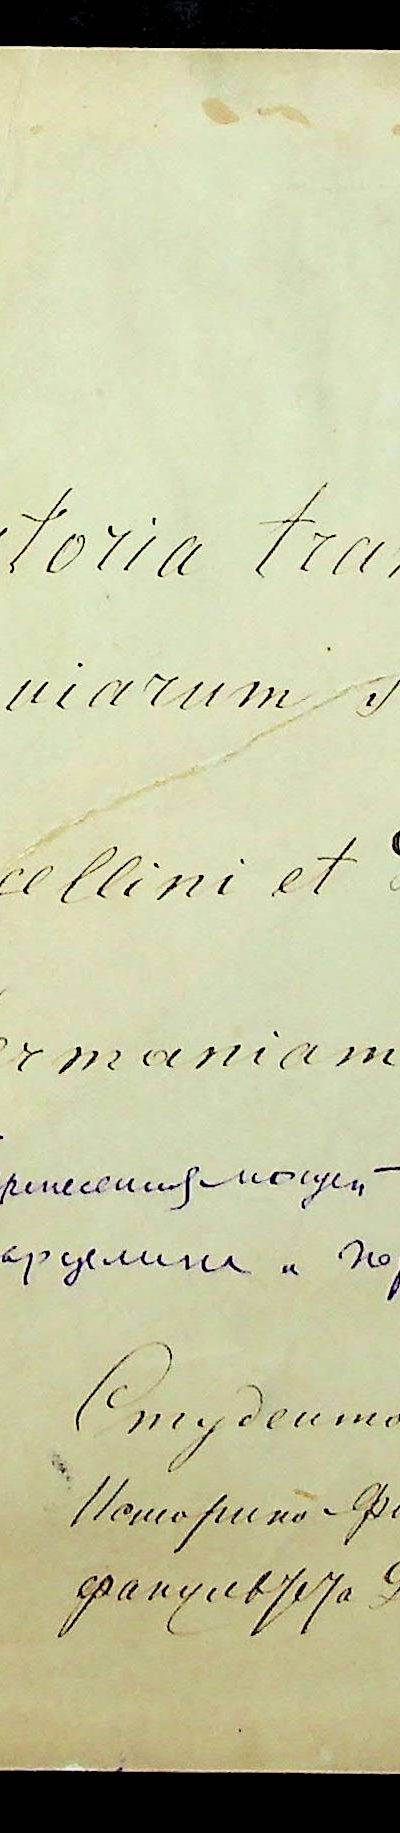 toria tran
niarum s
cellini et
ermaniam
ринесения мощей
арцелина и Пе
Студента
Историко-Фи
факультета